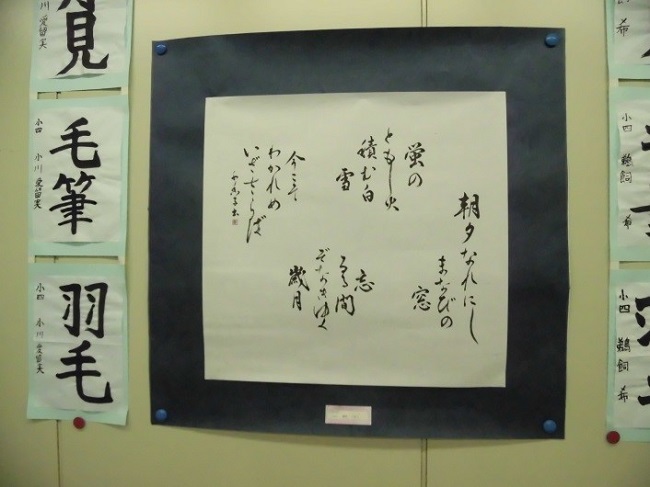 朝夕なれにし
まなびの
窓
蛍の
ともし火
積む白
雪
忘
るる間
ぞなきゆく
歳月
今こそ
わかれめ
いざさらば
毛筆
小四 小川愛留実
羽毛
小四 小川愛留実
見
小川愛留実
希
小四 鵜飼 希
小四 鵜飼 希